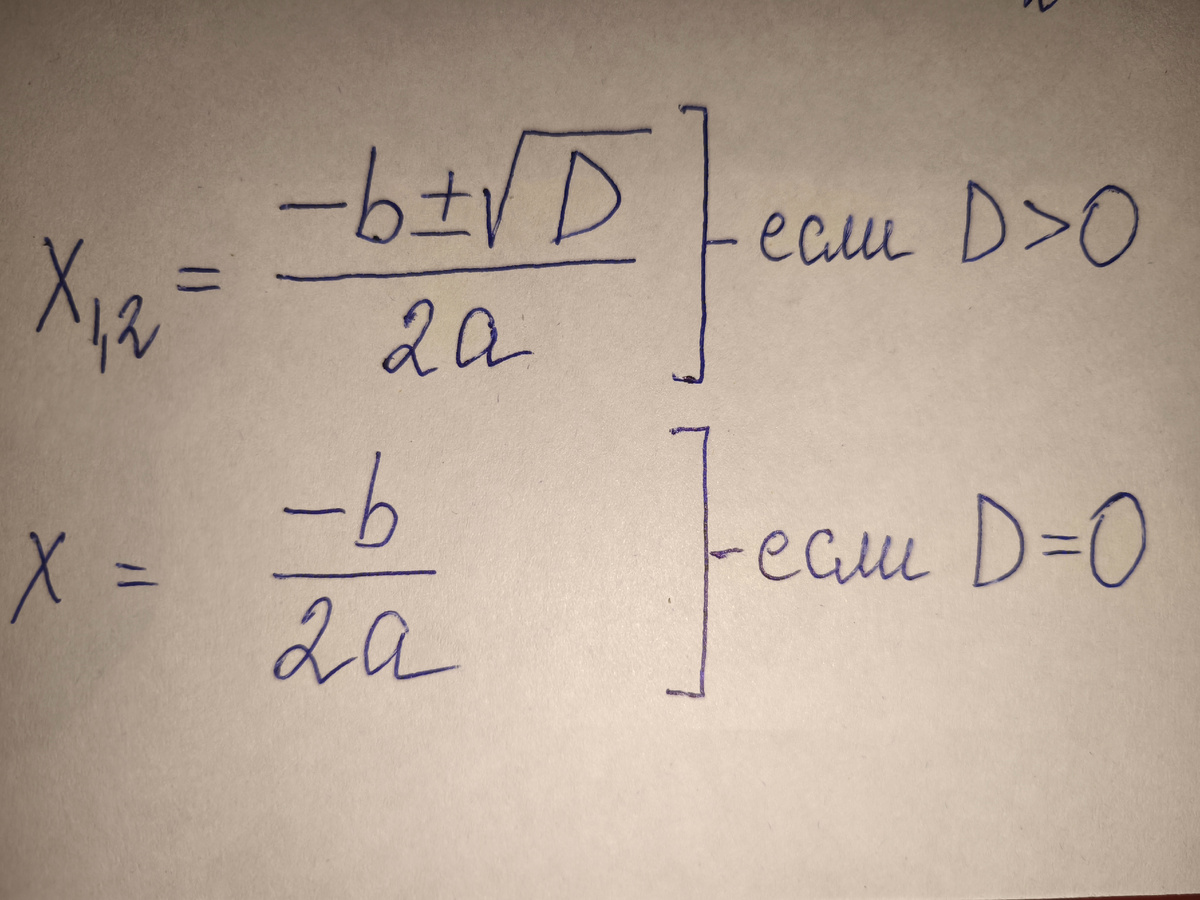 X₁,₂ = (-b ± √D) / 2a ] - если D > 0
X = -b / 2a ] - если D = 0